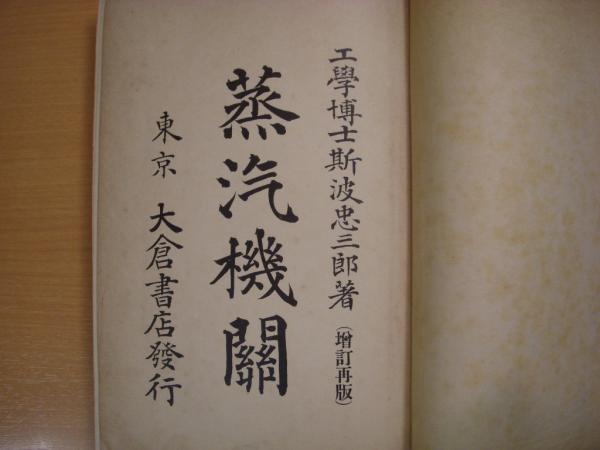 工學博士斯波忠三郎著（增訂再版）
蒸汽機關
東京 大倉書店發行